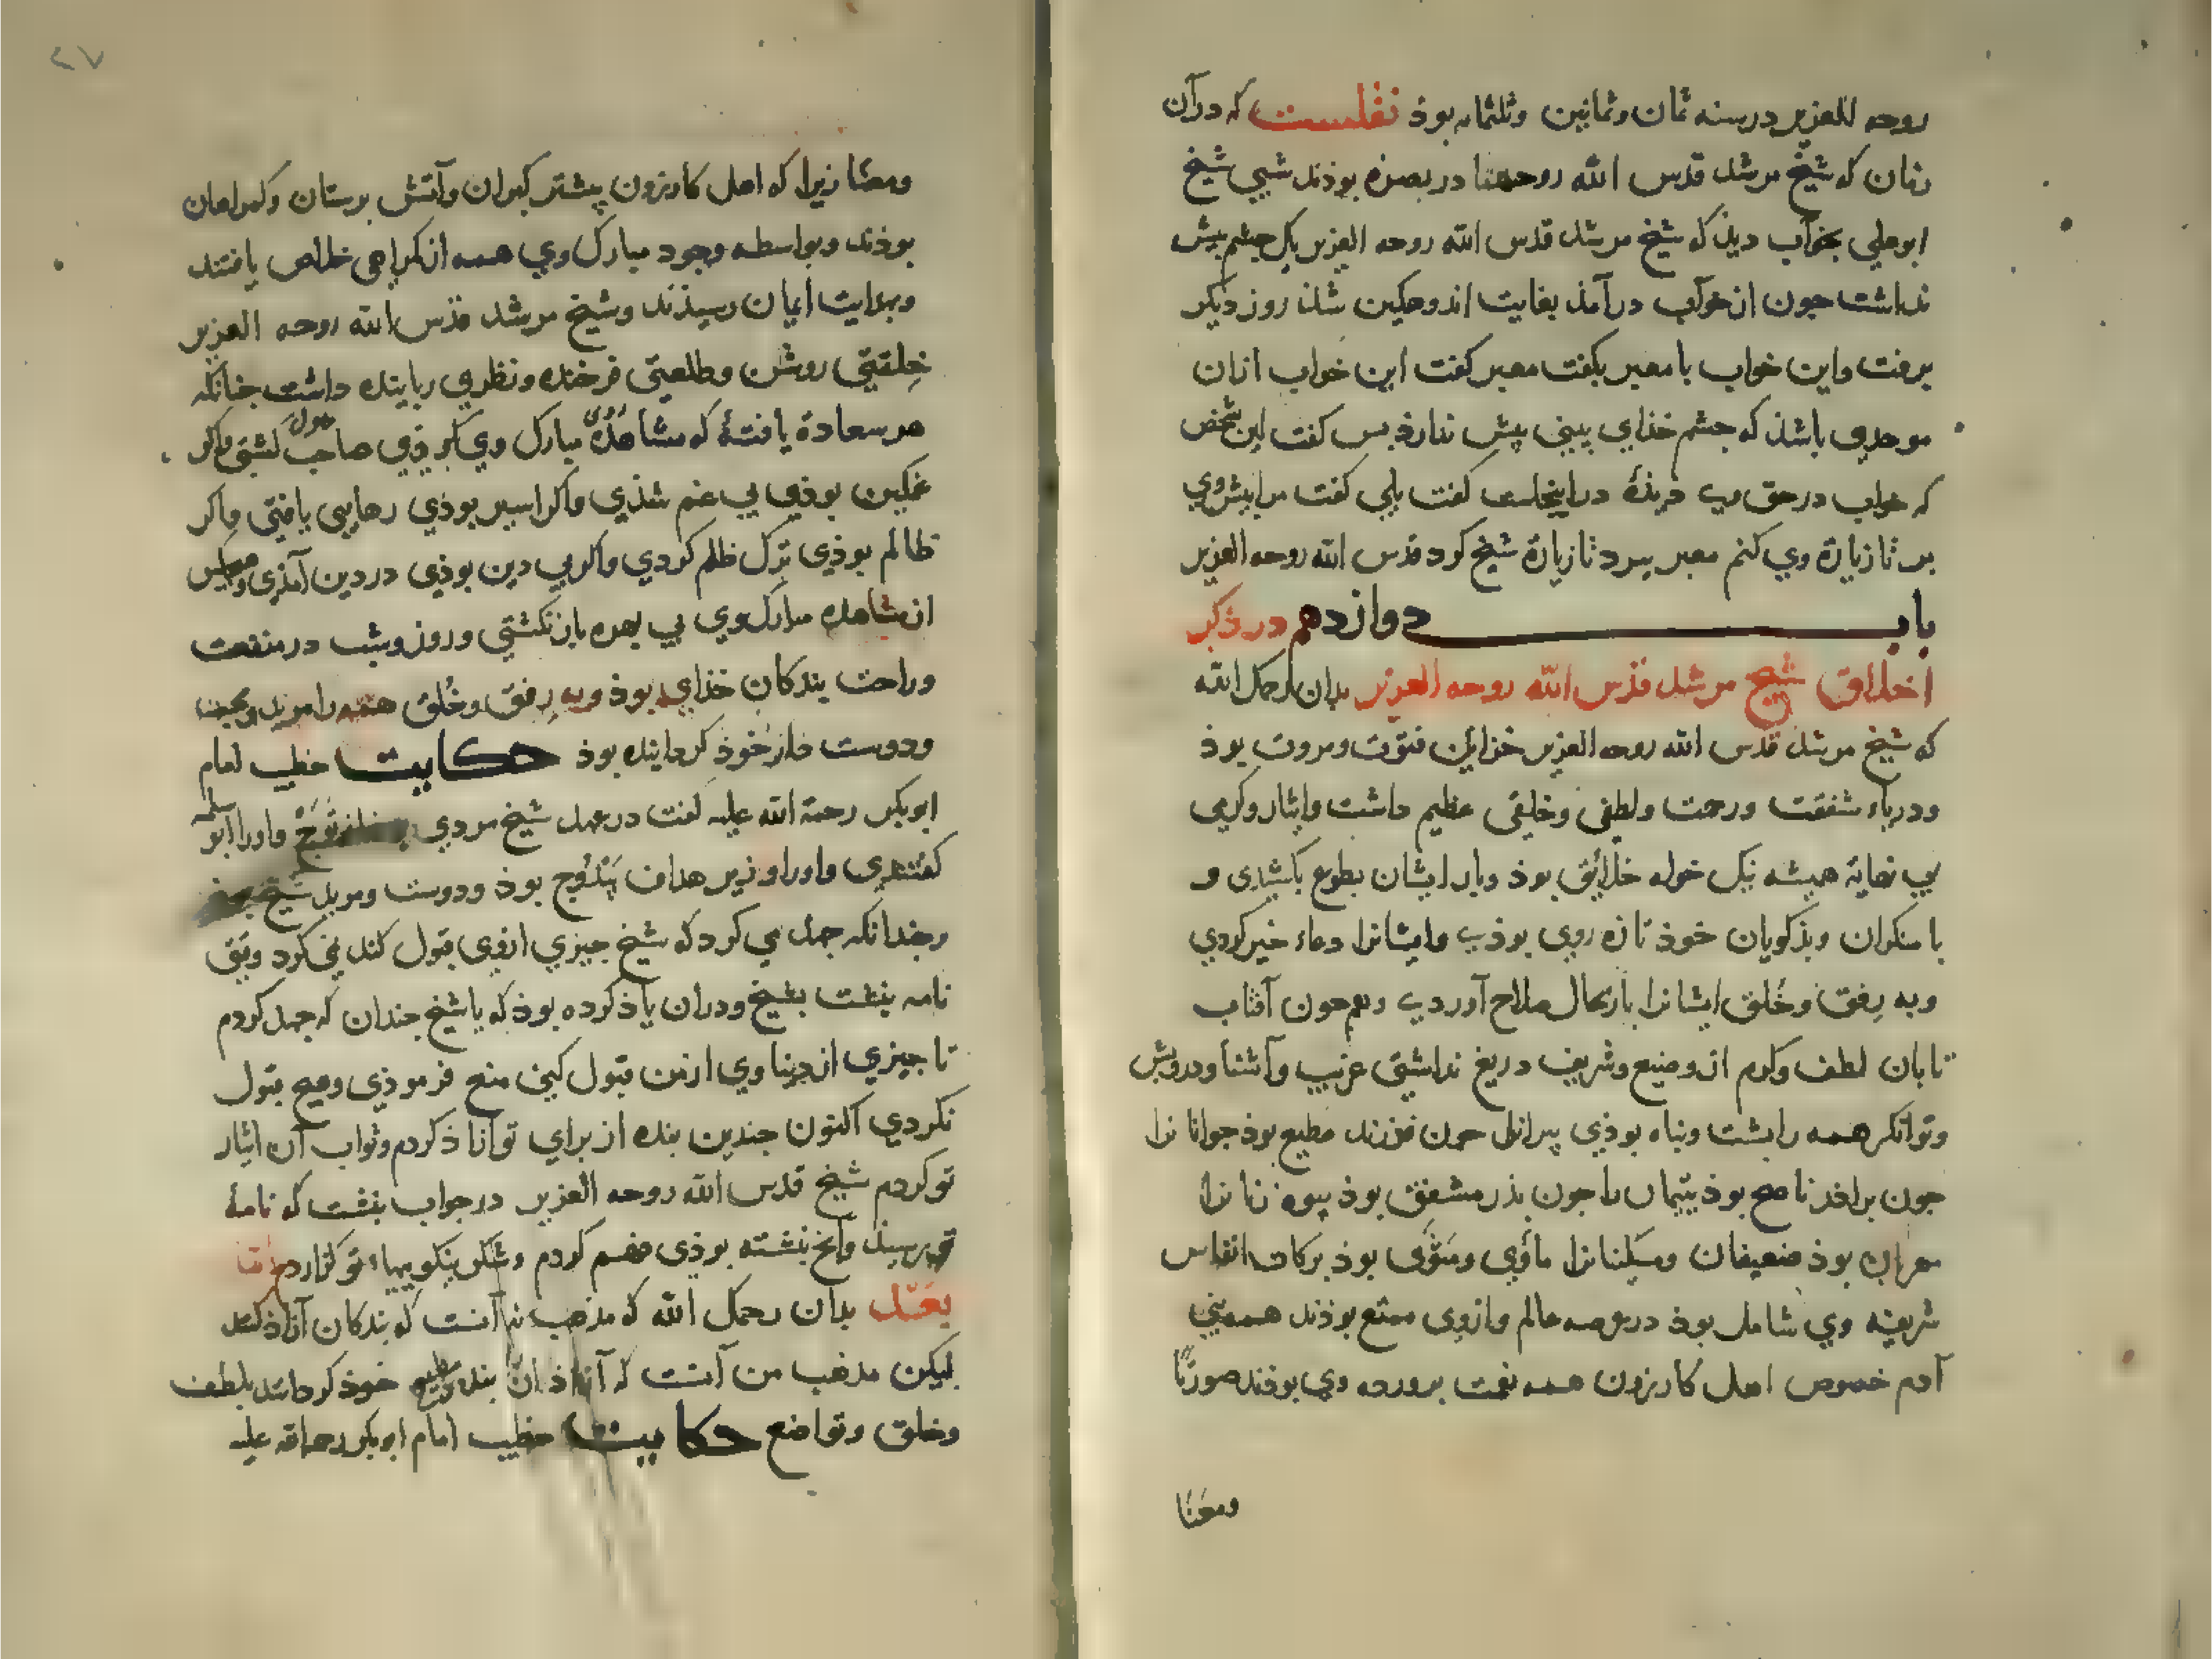 روحه العزيز در سنه ثمان وثمانين وثلثمايه بوذ نقلست كه دران
زمان كه شيخ مرشد قدس الله روحهما در بصره بوذند شبي شيخ
ابوعلي بخواب ديذ كه شيخ مرشد قدس الله روحه العزيز يك جشم بيش
نداشت جون از خواب درآمذ بغايت اندوهكين شذ روز ديكر
برفت واين خواب با معبر بكفت معبر كفت اين خواب ازان
موحدي باشذ كه جشم خذاي بيني بيش ندارذ بس كفت اين شخص
كه خواب در حق وي ديذهٔ در اينجاست كفت بلي كفت مرا بيش وي
بر تا زيارة وي كنم معبر ببرد تا زيارة شيخ كرد قدس الله روحه العزيز
باب دوازدهم در ذكر
اخلاق شيخ مرشد قدس الله روحه العزيز بدان رحمك الله
كه شيخ مرشد قدس الله روحه العزيز خزاين فتوت ومروت بوذ
ودرياء شفقت ورحمت ولطفي وخلقي عظيم داشت وايثار وكرمي
بي نهاية هميشه نيك خواه خلايق بوذ وبار ايشان بطوع بكشيدى و
با منكران وبذكويان خوذ تازه روي بوذي وايشانرا دعاء خير كردي
وبه رفق وخلق ايشانرا باز حال صلاح آوردي وهم جون آفتاب
تابان لطف وكرم از وضيع وشريف دريغ نداشتي غريب وآشنا ودرويش
وتوانكر همه را بشت وبناه بوذي پيرانرا جون فرزند مطيع بوذ جوانانرا
جون براذر ناصح بوذ يتيمان را جون بذر مشفق بوذ بيوه زنانرا
مهربان بوذ ضعيفان ومسكينانرا مأوي ومثوى بوذ بركات انفاس
شريفه وي شامل بوذ در عرصه عالم وازوى ممتع بوذند همه بني
آدم خصوص اهل كازرون همه نعمت پرورده وي بوذند صورتًا
ومعنًا
٢٧
ومعنًا زيرا كه اهل كازرون پيشتر كبران وآتش پرستان وكمراهان
بوذند وبواسطه وجود مبارك وي همه از كمراهي خلاص يافتند
وبهدايت ايمان رسيذند وشيخ مرشد قدس الله روحه العزيز
خلقتي روشن وطلعتي فرخنده ونظري رباينده داشت جنانكه
هر سعادة يافتهٔ كه مشاهدهٔ مبارك وي كردي صاحب دولت كشتي واكر
غمكين بوذي بي غم شذي واكر اسير بوذي رهايي يافتي واكر
ظالم بوذي ترك ظلم كردي واكر بي دين بوذي در دين آمذي وهيچ كس
از مشاهده مبارك وي بي بهره باز نكشتي وروز وشب در منفعت
وراحت بندكان خذاي بوذ وبه رفق وخلق همه را مريد ومحب
ودوست دار خوذ كردانيده بوذ حكايت خطيب امام
ابوبكر رحمة الله عليه كفت در عهد شيخ مردي واورا ابو سلمه
كفتندى واورا وزير هداف پندوح بوذ ودوست ومريد شيخ
وجندانكه جهد مي كرد كه شيخ جيزي ازوي قبول كند نمي كرد وقتي
نامه بنبشت بشيخ ودران ياذ كرده بوذ كه يا شيخ جندان كه جهد كردم
تا جيزي از دنياوي از من قبول كني منع فرموذي وهيچ قبول
نكردي اكنون جندين بنده از براي تو آزاذ كردم وثواب آن ايثار
تو كردم شيخ قدس الله روحه العزيز در جواب بنبشت كه نامهٔ
تو رسيذ وانج نبشته بوذى فهم كردم وشكر نيكوييهاء تو كزاردم اما
بعد بدان رحمك الله كه مذهب تو آنست كه بندكان آزاذ كند
ليكن مذهب من آنست كه آزاذان بنده ومطيع خوذ كردانند بلطف
وخلق وتواضع حكايت خطيب امام ابوبكر رحمة الله عليه